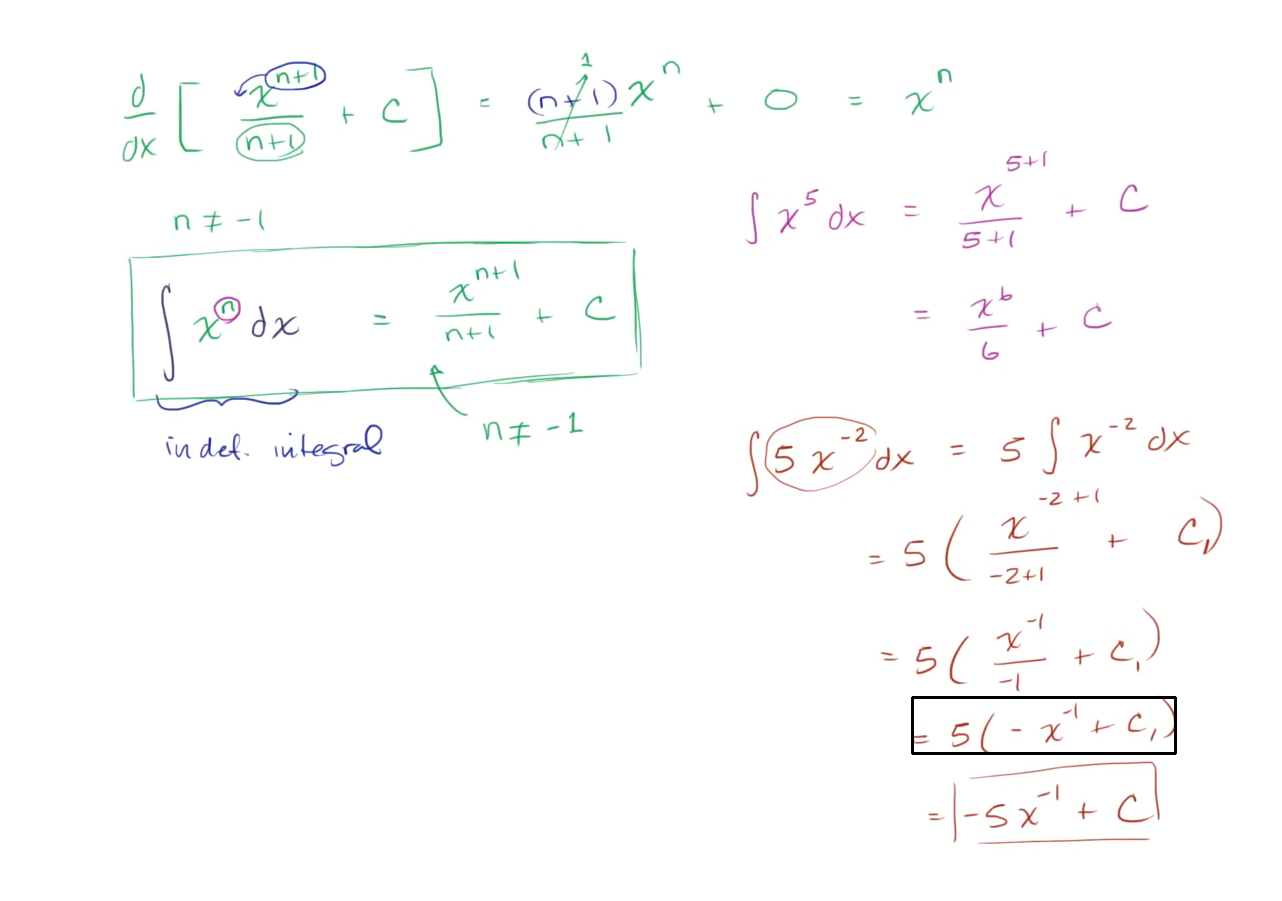 d/dx [ x^(n+1)/(n+1) + C ] = (n+1)x^n/(n+1) 1 + 0 = x^n
n ≠ -1
∫ x^n dx = x^(n+1)/(n+1) + C
n ≠ -1
indef. integral
∫ x^5 dx = x^(5+1)/(5+1) + C
= x^6/6 + C
∫ 5 x^-2 dx = 5 ∫ x^-2 dx
= 5 ( x^(-2+1)/(-2+1) + C₁)
= 5 ( x^-1/-1 + C₁)
= 5 ( - x^-1 + C₁)
= -5x^-1 + C